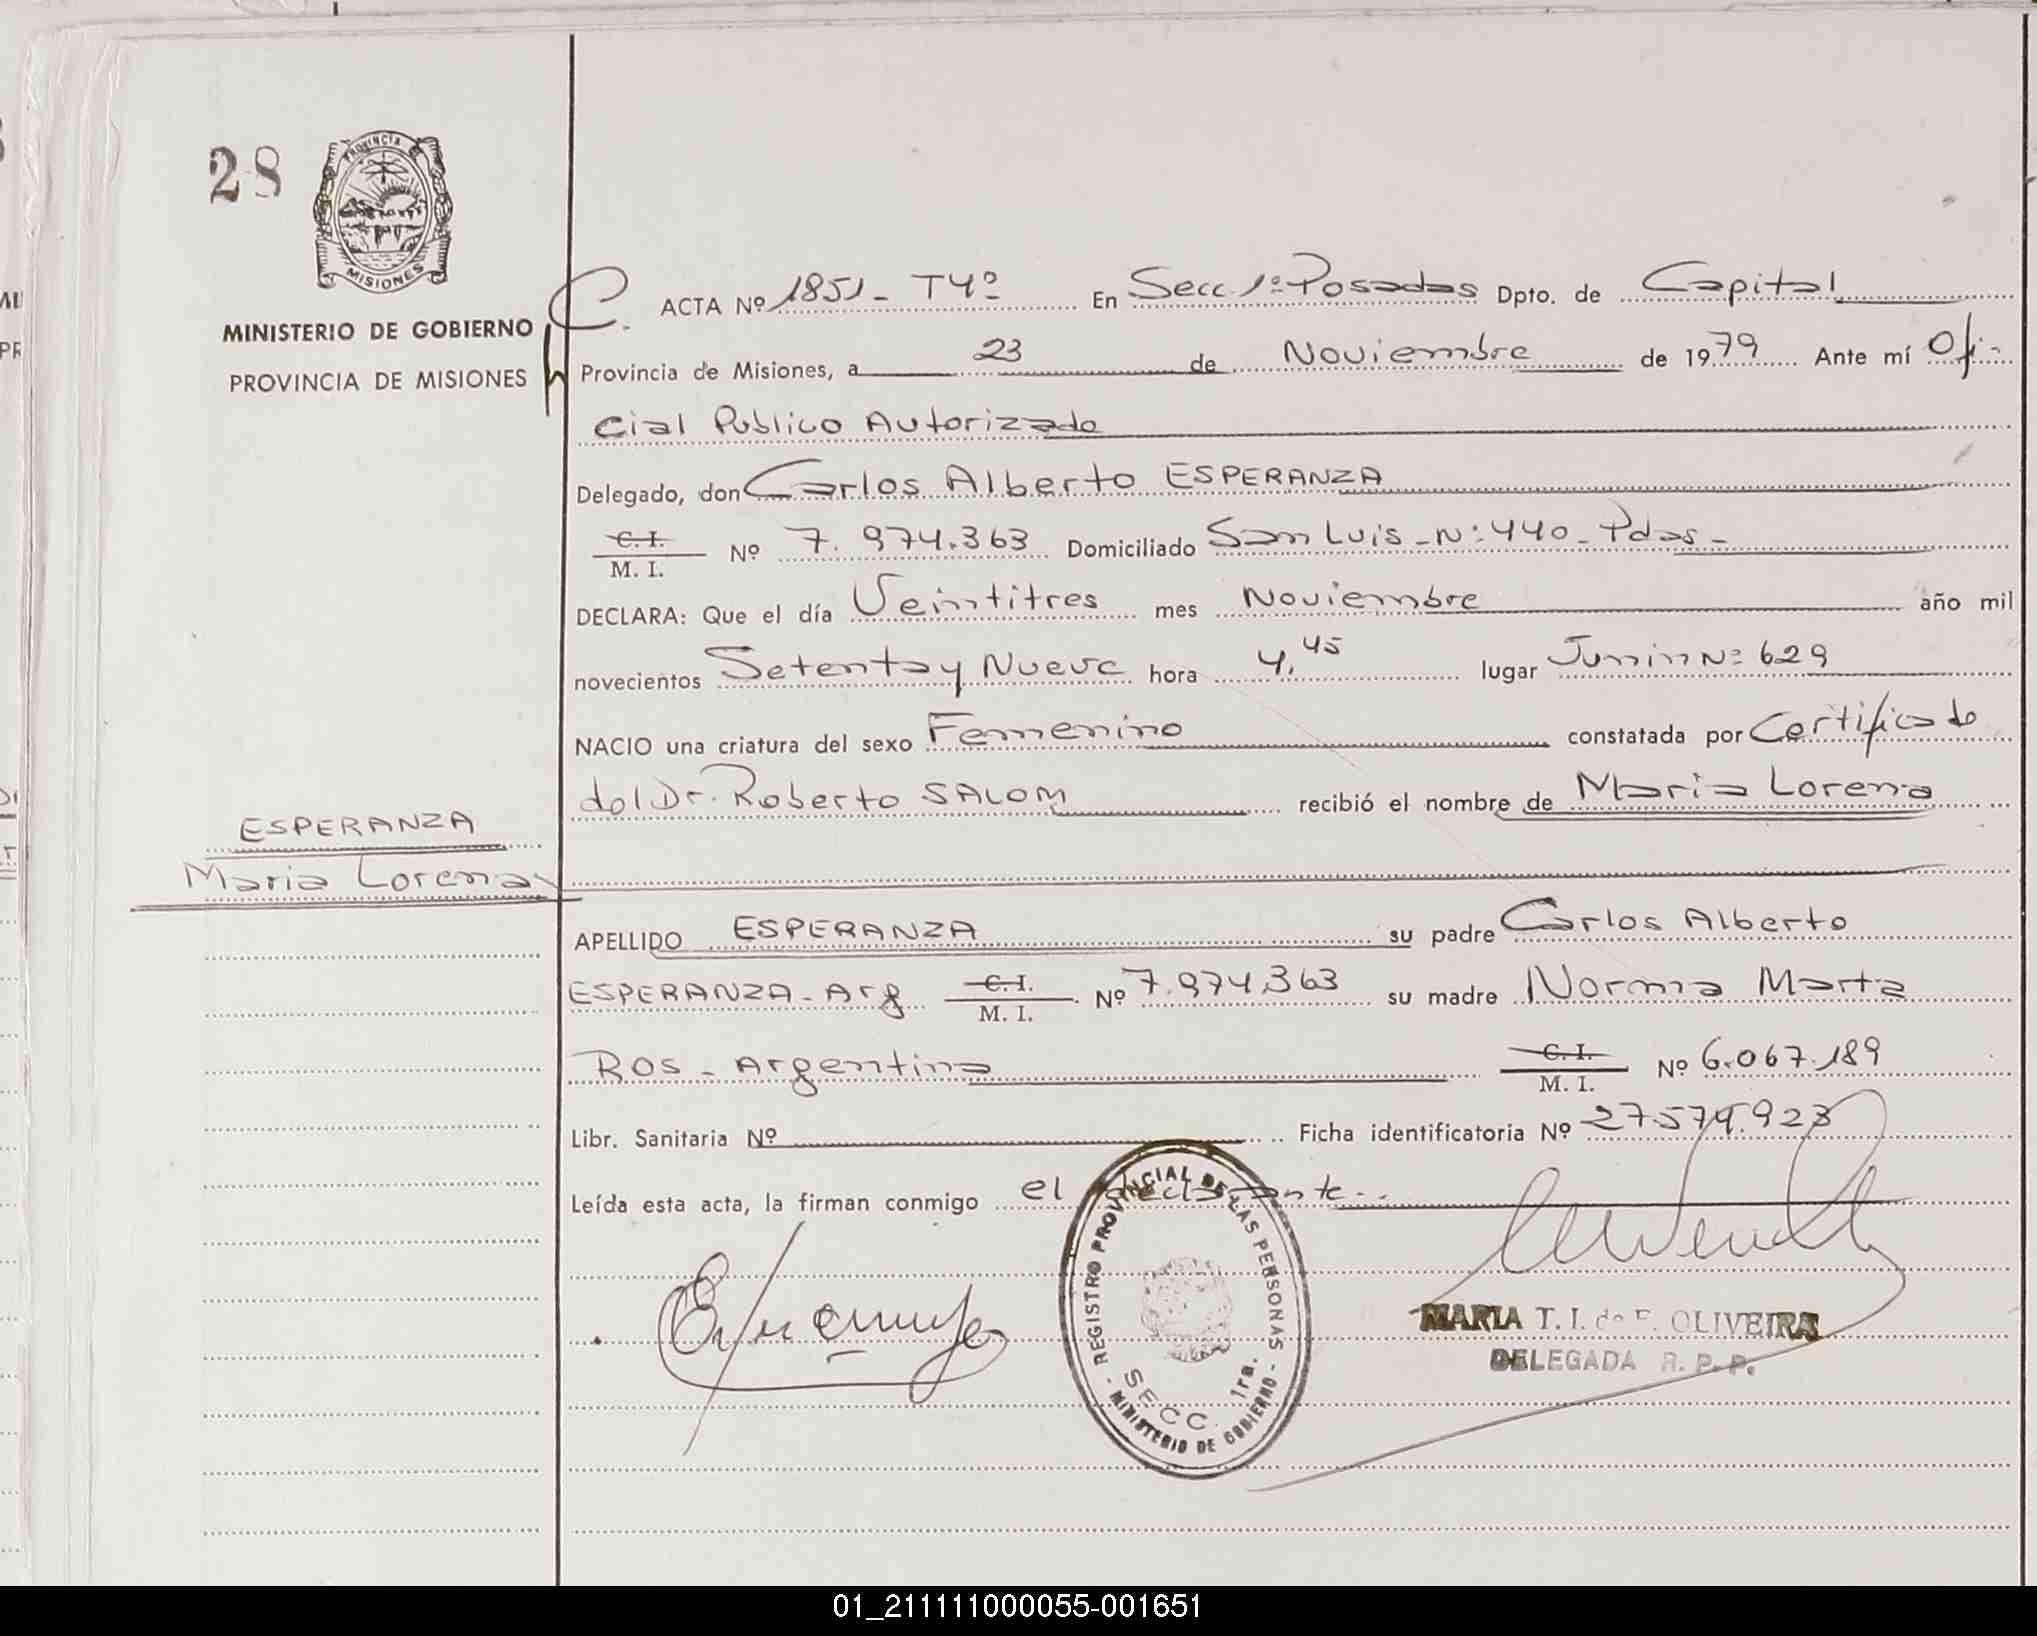 28
PROVINCIA DE
MISIONES
MINISTERIO DE GOBIERNO
PROVINCIA DE MISIONES
C. ACTA Nº 1851- T4º En Secc. 1ª Posadas Dpto. de Capital
Provincia de Misiones, a 23 de Noviembre de 1979 Ante mí Ofi-
cial Publico Autorizado
Delegado, don Carlos Alberto ESPERANZA
C. I.
M. I. Nº 7.974.363 Domiciliado San Luis - Nº: 440 - Pdas -
DECLARA: Que el día Veintitres mes Noviembre año mil
novecientos Setenta y Nueve hora 4,45 lugar Junin Nº 629
NACIO una criatura del sexo Femenino constatada por Certificado
del Dr. Roberto SALOM recibió el nombre de Maria Lorena
ESPERANZA
Maria Lorena
APELLIDO ESPERANZA su padre Carlos Alberto
ESPERANZA - Arg C. I.
M. I. Nº 7.974.363 su madre Norma Marta
ROS - Argentina C. I.
M. I. Nº 6.067.189
Libr. Sanitaria Nº Ficha identificatoria Nº 27.574.923
Leída esta acta, la firman conmigo el declarante..
REGISTRO PROVINCIAL DE LAS PERSONAS
SECC. 1ra.
MINISTERIO DE GOBIERNO
MARIA T. I. de F. OLIVEIRA
DELEGADA R. P. P.
01_211111000055-001651